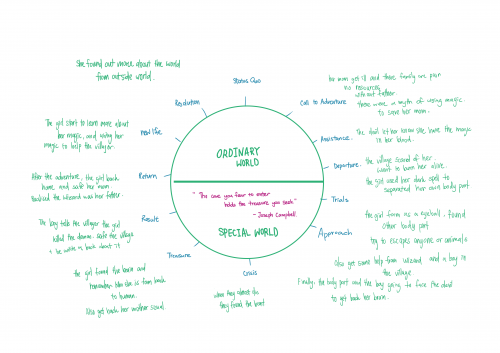 She found out more about the world
from outside world.
Status Quo
Call to Adventure
her mom get ill and there family are poor
no resources
without father
there were a myth of using magic.
to save her mom.
Assistance
The
let her know she have the magic
in her blood.
Departure
the village scared of her
want to burn her alive.
the girl used her dark spell to
separated her own body part
Trials
the girl form as a eyeball, found
other body part
Approach
try to escapes anyone or animals
Also get some help from wizard and a boy in
the village
Finally, the body part and the boy going to face the devil
to get back her brain.
Crisis
when they about die
they found the
Treasure
the girl found the brain and
remember who she is turn back
to human.
Also get back her mother soul
Result
The boy tell the villager the girl
killed the demon. safe the village
& he write a book about it
Return
After the adventure, the girl back
home and safe her mom
realized the wizard was her father.
New life
The girl start to learn more about
her magic, and using her
magic to help the villager.
Resolution
ORDINARY
WORLD
"The cave you fear to enter
holds the treasure you seek"
- Joseph Campbell.
SPECIAL WORLD